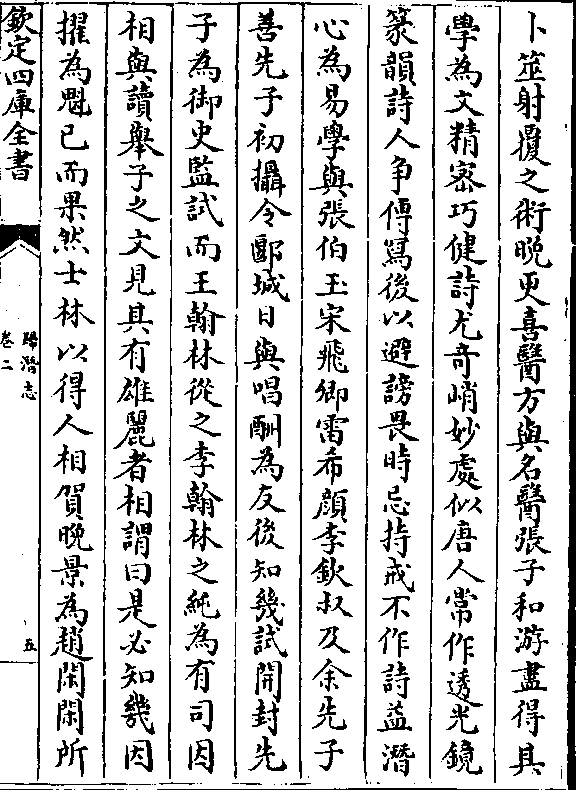 卜筮射覆之術晚更喜醫方與名醫張子和游盡得其
學為文精密巧健詩尤奇峭妙處似唐人常作透光鏡
篆韻詩人争傳寫後以避謗畏時忌持戒不作詩益潛
心為易學與張伯玉宋飛卿雷希顔李欽叔及余先子
善先子初攝令郾城日與唱酬為友後知幾試開封先
子為御史監試而王翰林從之李翰林之純為有司因
相與讀舉子之文見其有雄麗者相謂曰是必知幾因
擢為魁已而果然士林以得人相賀晚景為趙閑閑所
欽定四庫全書
歸潛志
卷二
五